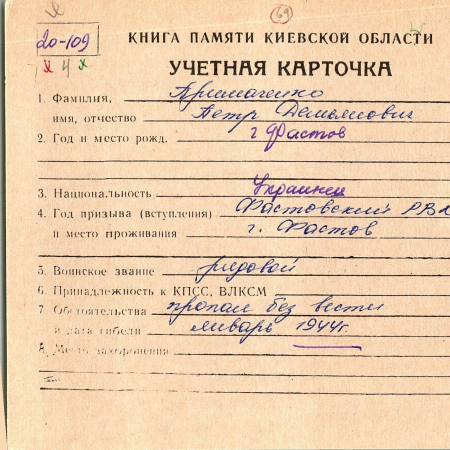 69
20-109
х 4 х
КНИГА ПАМЯТИ КИЕВСКОЙ ОБЛАСТИ
УЧЕТНАЯ КАРТОЧКА
1. Фамилия, Примаченко
имя, отчество Петр Демьянович
2. Год и место рожд. г Фастов
3. Национальность Украинец
4. Год призыва (вступления) Фастовский РВК
и место проживания г. Фастов
5. Воинское звание рядовой
6. Принадлежность к КПСС, ВЛКСМ
7. Обстоятельства пропал без вести
и дата гибели январь 1944г.
8. Место захоронения